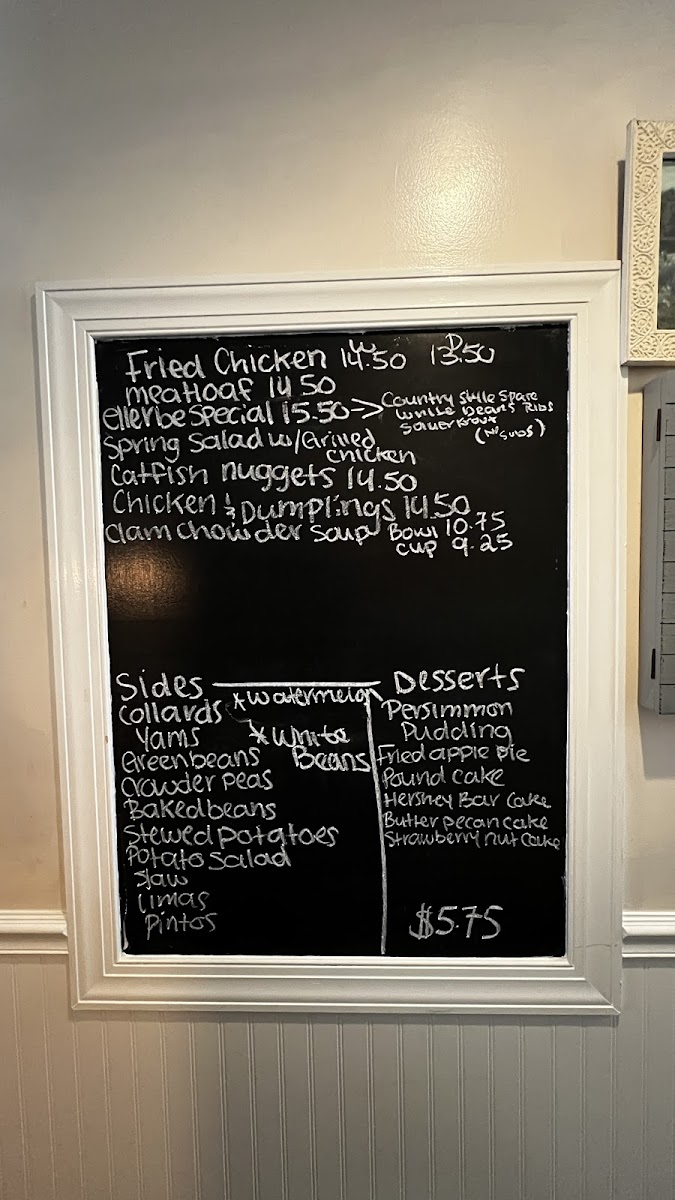 Fried Chicken W 14.50 D 13.50
meatloaf 14.50
Ellerbe Special 15.50 → Country Style Spare
white Beans Ribs
Sauerkraut
(no subs)
Spring Salad w/Grilled
chicken
Catfish nuggets 14.50
Chicken & Dumplings 14.50
Clam chowder soup Bowl 10.75
cup 9.25
Sides
*watermelon
Collards
Yams
*White
Beans
Greenbeans
Crowder peas
Baked beans
Stewed potatoes
Potato salad
slaw
limas
pintos
Desserts
Persimmon
Pudding
Fried apple pie
Pound cake
Hershey Bar Cake
Butter pecan cake
Strawberry nut Cake
$5.75